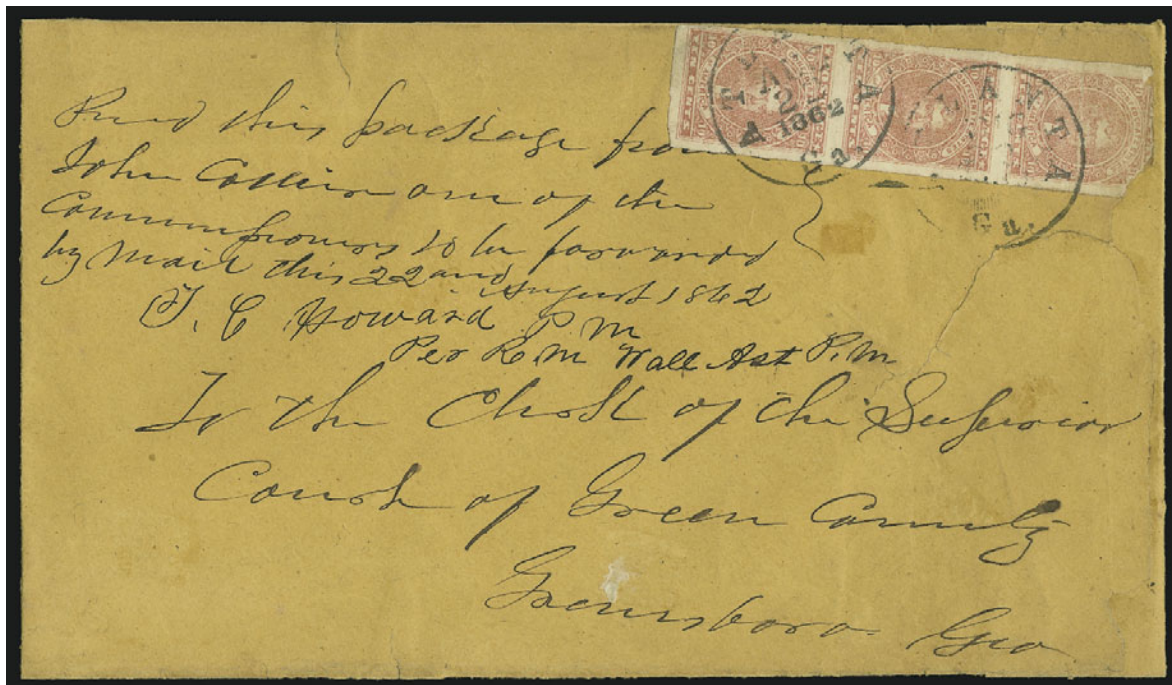 Recd this package from
John Collier one of the
Commissioners to be forwarded
by Mail this 22nd August 1862
T. C Howard P. M
Per R. M Wall Ast P. M
To the Clerk of the Superior
Court of Green County
Greensboro Geo
ATLANTA Ga. 1862
ATLANTA Ga.